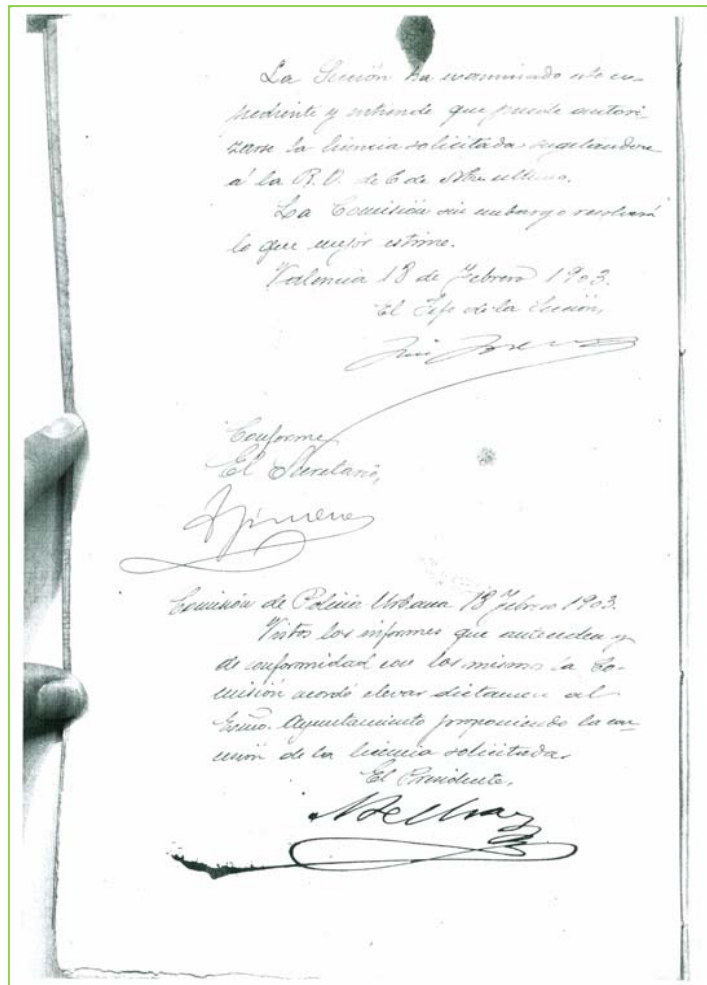 La Sección ha examinado este ex-
pediente y entiende que puede autori-
zarse la licencia solicitada sugetandose
á la R. O. de 6 de Nbre último.
La Comisión sin embargo resolverá
lo que mejor estime.
Valencia 13 de Febrero 1903.
El Jefe de la Sección,
Conforme
El Secretario,
Comisión de Policia Urbana 18 Febrero 1903.
Vistos los informes que anteceden y
de conformidad con los mismos la Co-
misión acordó elevar dictamen al
Excmo. Ayuntamiento proponiendo la con-
cesión de la licencia solicitada.
El Presidente,